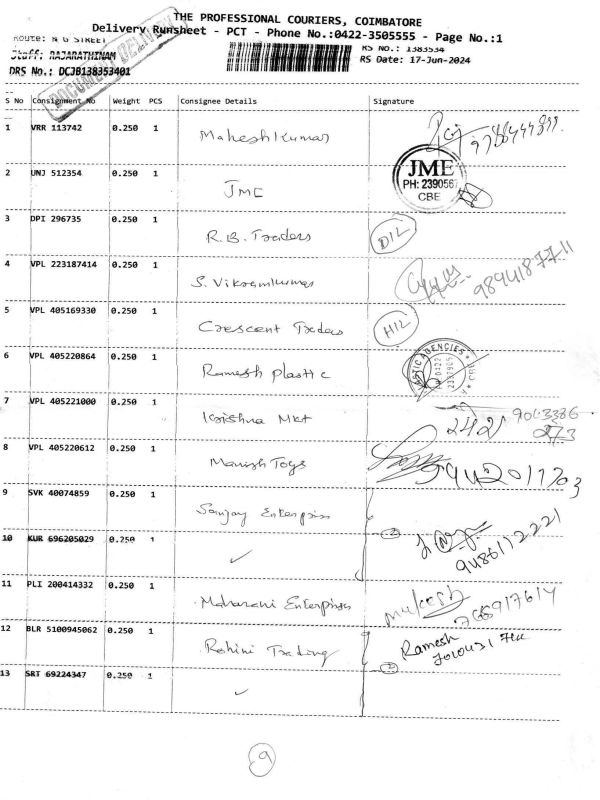 THE PROFESSIONAL COURIERS, COIMBATORE
Delivery Runsheet - PCT - Phone No.:0422-3505555 - Page No.:1
Route: N G STREET
RS No.: 1383534
Staff: RAJARATHINAM
RS Date: 17-Jun-2024
DRS No.: DCJB138353401
S No Consignment No Weight PCS Consignee Details Signature
1 VRR 113742 0.250 1 Mahesh Kumar
2 UNJ 512354 0.250 1 JME
JME
PH: 2390567
CBE
3 DPI 296735 0.250 1 R.B. Traders D12
4 VPL 223187414 0.250 1 S. Vikramkumar 9894187711
5 VPL 405169330 0.250 1 Crescent Traders H12
6 VPL 405220864 0.250 1 Ramesh plastic
7 VPL 405221000 0.250 1 Krishna Mkt
8 VPL 405220612 0.250 1 Manish Toys
9 SVK 40074859 0.250 1 Sanjay Enterprises
10 KUR 696205029 0.250 1 ✓ 2 9486112221
11 PLI 200414332 0.250 1 Maharani Enterprises mukesh
12 BLR 5100945062 0.250 1 Rohini Trading Ramesh
13 SRT 69224347 0.250 1 ✓ 2
9